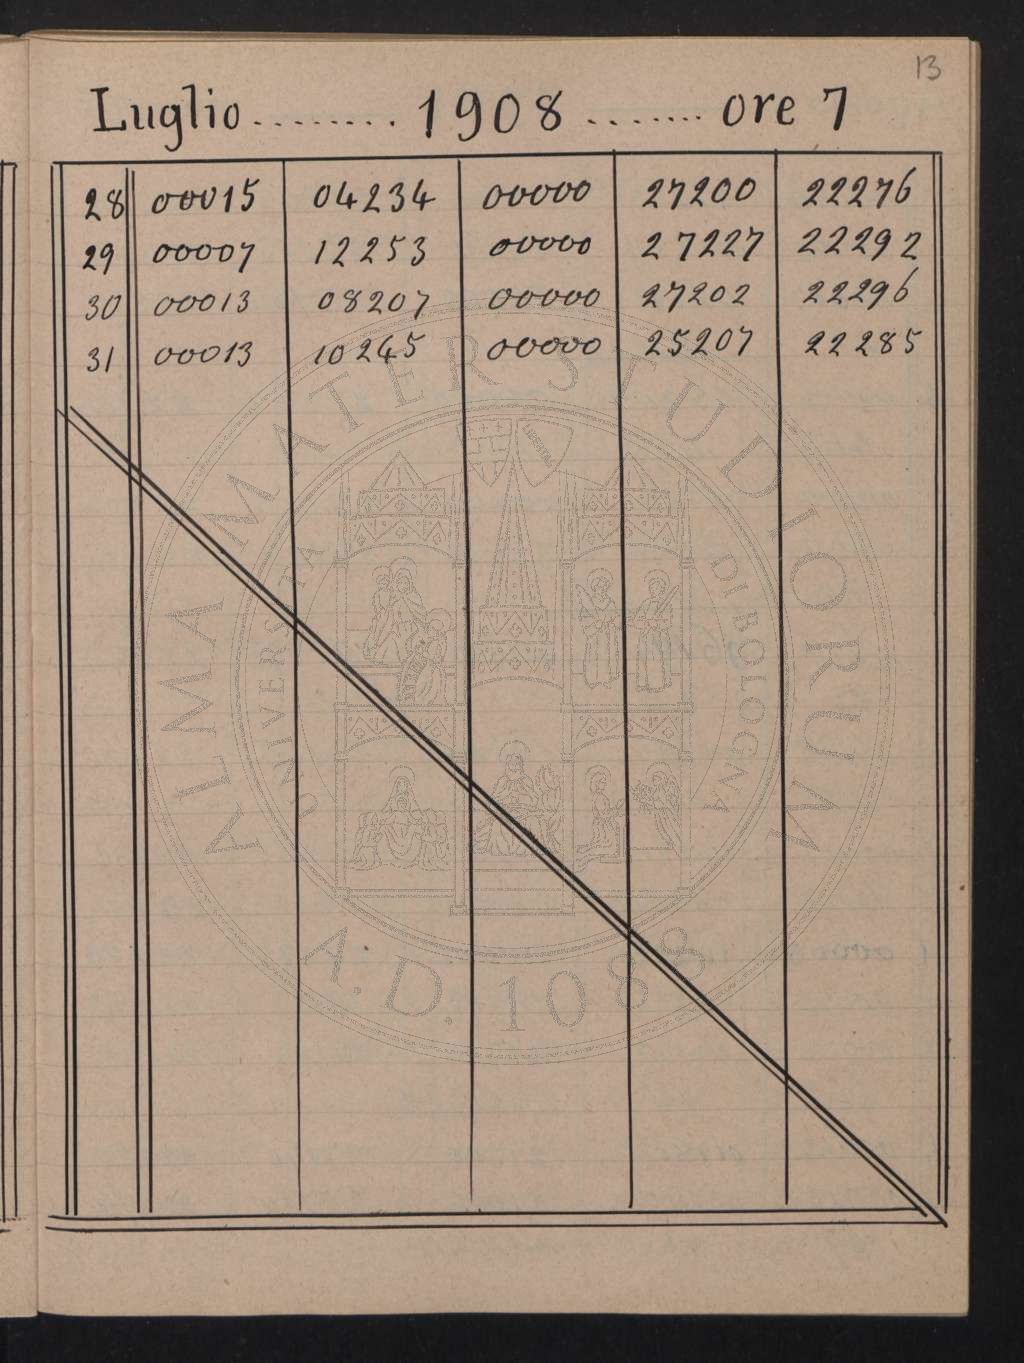 13
Luglio ........ 1908 ....... ore 7
28 00015 04234 00000 27200 22276
29 00007 12253 00000 27227 22292
30 00013 08207 00000 27202 22296
31 00013 10245 00000 25207 22285
ALMA MATER STUDIORUM
UNIVERSITA DI BOLOGNA
LIBERTAS
A.D. 1088